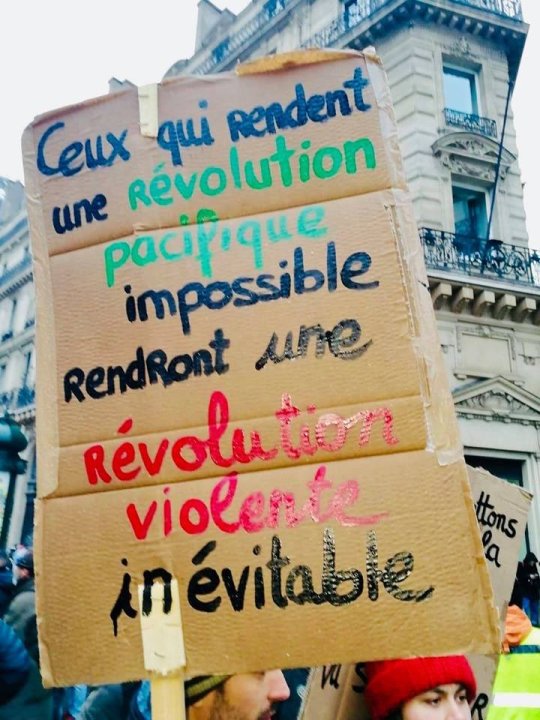 Ceux qui rendent
une révolution
pacifique
impossible
rendront une
révolution
violente
inévitable
ttons
la